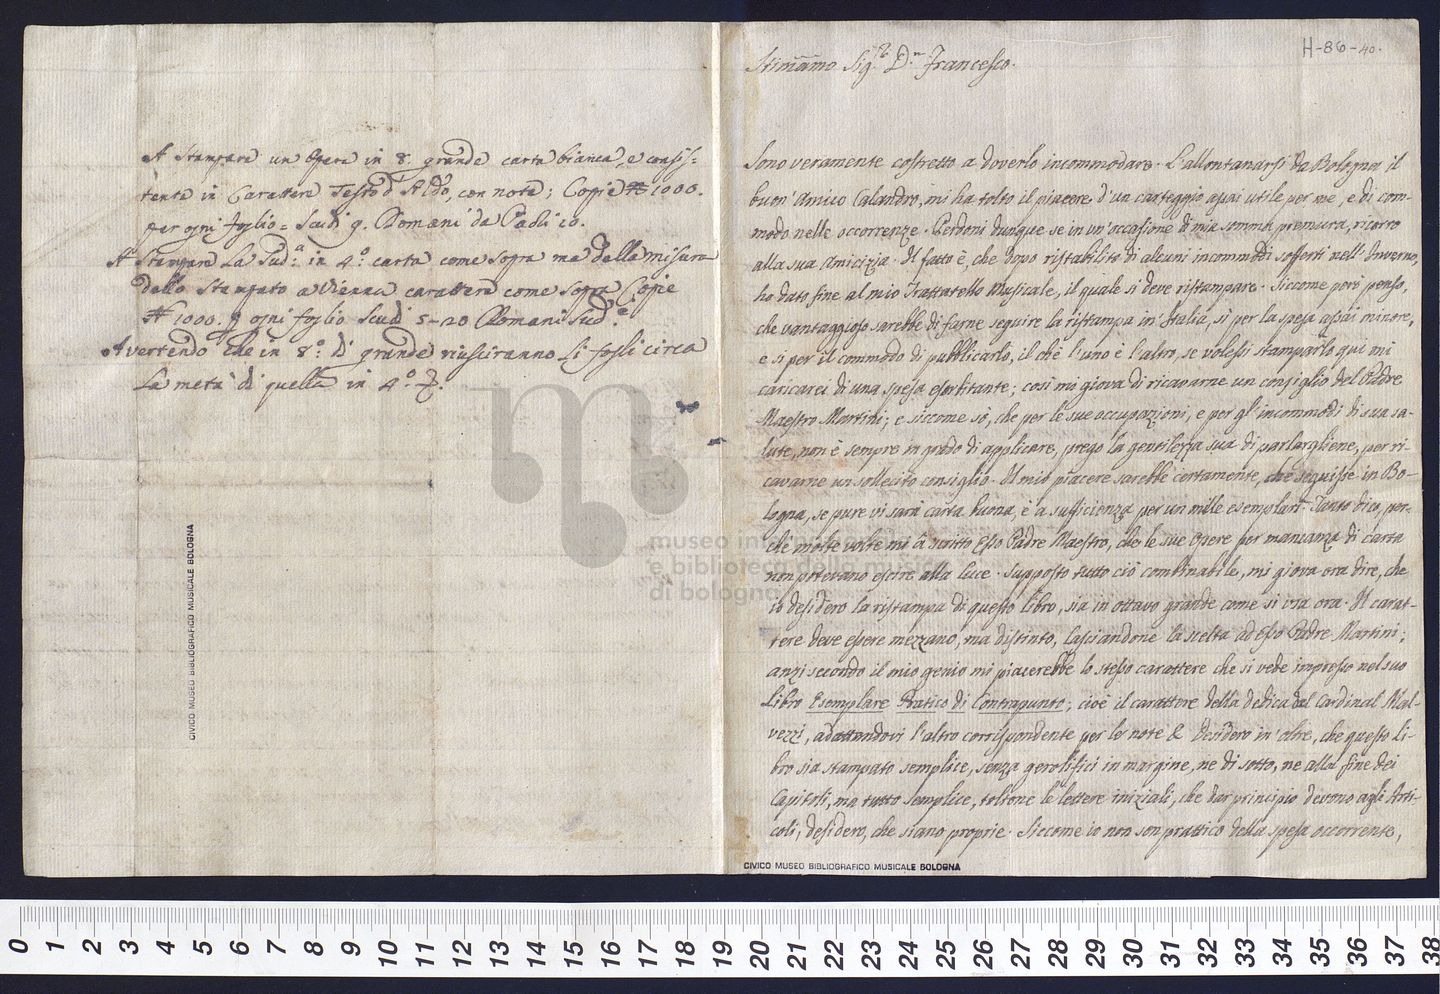 A Stampare un Opera in 8.º grande carta bianca, e consis=
tente in Carattere Testo d'Aldo, con note; Copie 1000.
per ogni foglio = Scudi 9. Romani da Paoli 10.
A Stampare La Sud.ª in 4.º carta come sopra ma della misura
dello Stampato a Vienna carattere come sopra Copie
1000. p ogni foglio Scudi 5-20 Romani Sud.i
Avertendo che in 8.º di grande riusciranno li fogli circa
La metà di quella in 4.º
CIVICO MUSEO BIBLIOGRAFICO MUSICALE BOLOGNA
H-86-40.
Stimamo Sig.r D.n Francesco.
Sono veramente costretto a doverlo incommodare. L'allontanarsi da Bologna il
buon' Amico Calandro, mi ha tolto il piacere d'un carteggio assai utile per me, e di com-
modo nelle occorrenze. Perdoni dunque se in un' occasione di mia somma premura, ricorro
alla sua Amicizia. Il fatto è, che dopo ristabilito di alcuni incommodi sofferti nell' Inverno,
ho dato fine al mio Trattatello Musicale, il quale si deve ristampare. Siccome però penso,
che vantaggioso sarebbe di farne seguire la ristampa in Italia, si per la spesa assai minore,
e si per il commodo di pubblicarlo, il chè l'uno è l'altro, se volessi stamparlo qui mi
caricarei di una spesa esorbitante; così mi giova di ricavarne un consiglio del Padre
Maestro Martini; e siccome sò, che per le sue occupazioni, e per gl' incommodi di sua sa-
lute, non è sempre in grado di applicare, prego la gentilezza sua di parlargliene, per ri-
cavarne un sollecito consiglio. Il mio piacere sarebbe certamente, che seguisse in Bo-
logna, se pure vi sarà carta buona, è a sufficienza per un mille esemplari. Tanto dico, per-
chè molte volte mi à scritto Esso Padre Maestro, che le sue Opere per mancanza di carta
non potevano escire alla luce. Supposto tutto ciò combinabile, mi giova ora dire, che
io desidero la ristampa di questo libro, sia in ottavo grande come si usa ora. Il carat-
tere deve essere mezzano, ma distinto, lasciandone la scelta ad Esso Padre Martini;
anzi secondo il mio genio mi piacerebbe lo stesso carattere che si vede impresso nel suo
Libro Esemplare Pratico di Contrapunto; cioè il carattere della dedica dal Cardinal Mal-
vezzi, adattandovi l'altro corrispondente per le note &. Desidero in oltre, che questo li-
bro sia stampato semplice, senza gerolifici in margine, ne di sotto, ne alla fine dei
Capitoli, ma tutto semplice, toltone le lettere iniziali, che dar principio devono agli Arti-
coli, desidero, che siano proprie. Siccome io non son prattico della spesa occorrente,
CIVICO MUSEO BIBLIOGRAFICO MUSICALE BOLOGNA
museo internazionale
e biblioteca della musica
di bologna
0 1 2 3 4 5 6 7 8 9 10 11 12 13 14 15 16 17 18 19 20 21 22 23 24 25 26 27 28 29 30 31 32 33 34 35 36 37 38